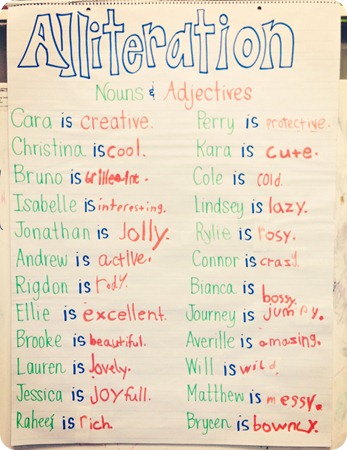 Alliteration
Nouns & Adjectives
Cara is creative.
Christina is cool.
Bruno is
Isabelle is interesting.
Jonathan is Jolly.
Andrew is active.
Rigdon is
Ellie is excellent.
Brooke is beautiful.
Lauren is lovely.
Jessica is Joyfull.
Raheef is rich.
Perry is protective.
Kara is cute.
Cole is cold.
Lindsey is lazy.
Rylie is rosy.
Connor is crazy.
Bianca is bossy.
Journey is jumpy.
Averille is amasing.
Will is wild.
Matthew is messy.
Brycen is bowncy.